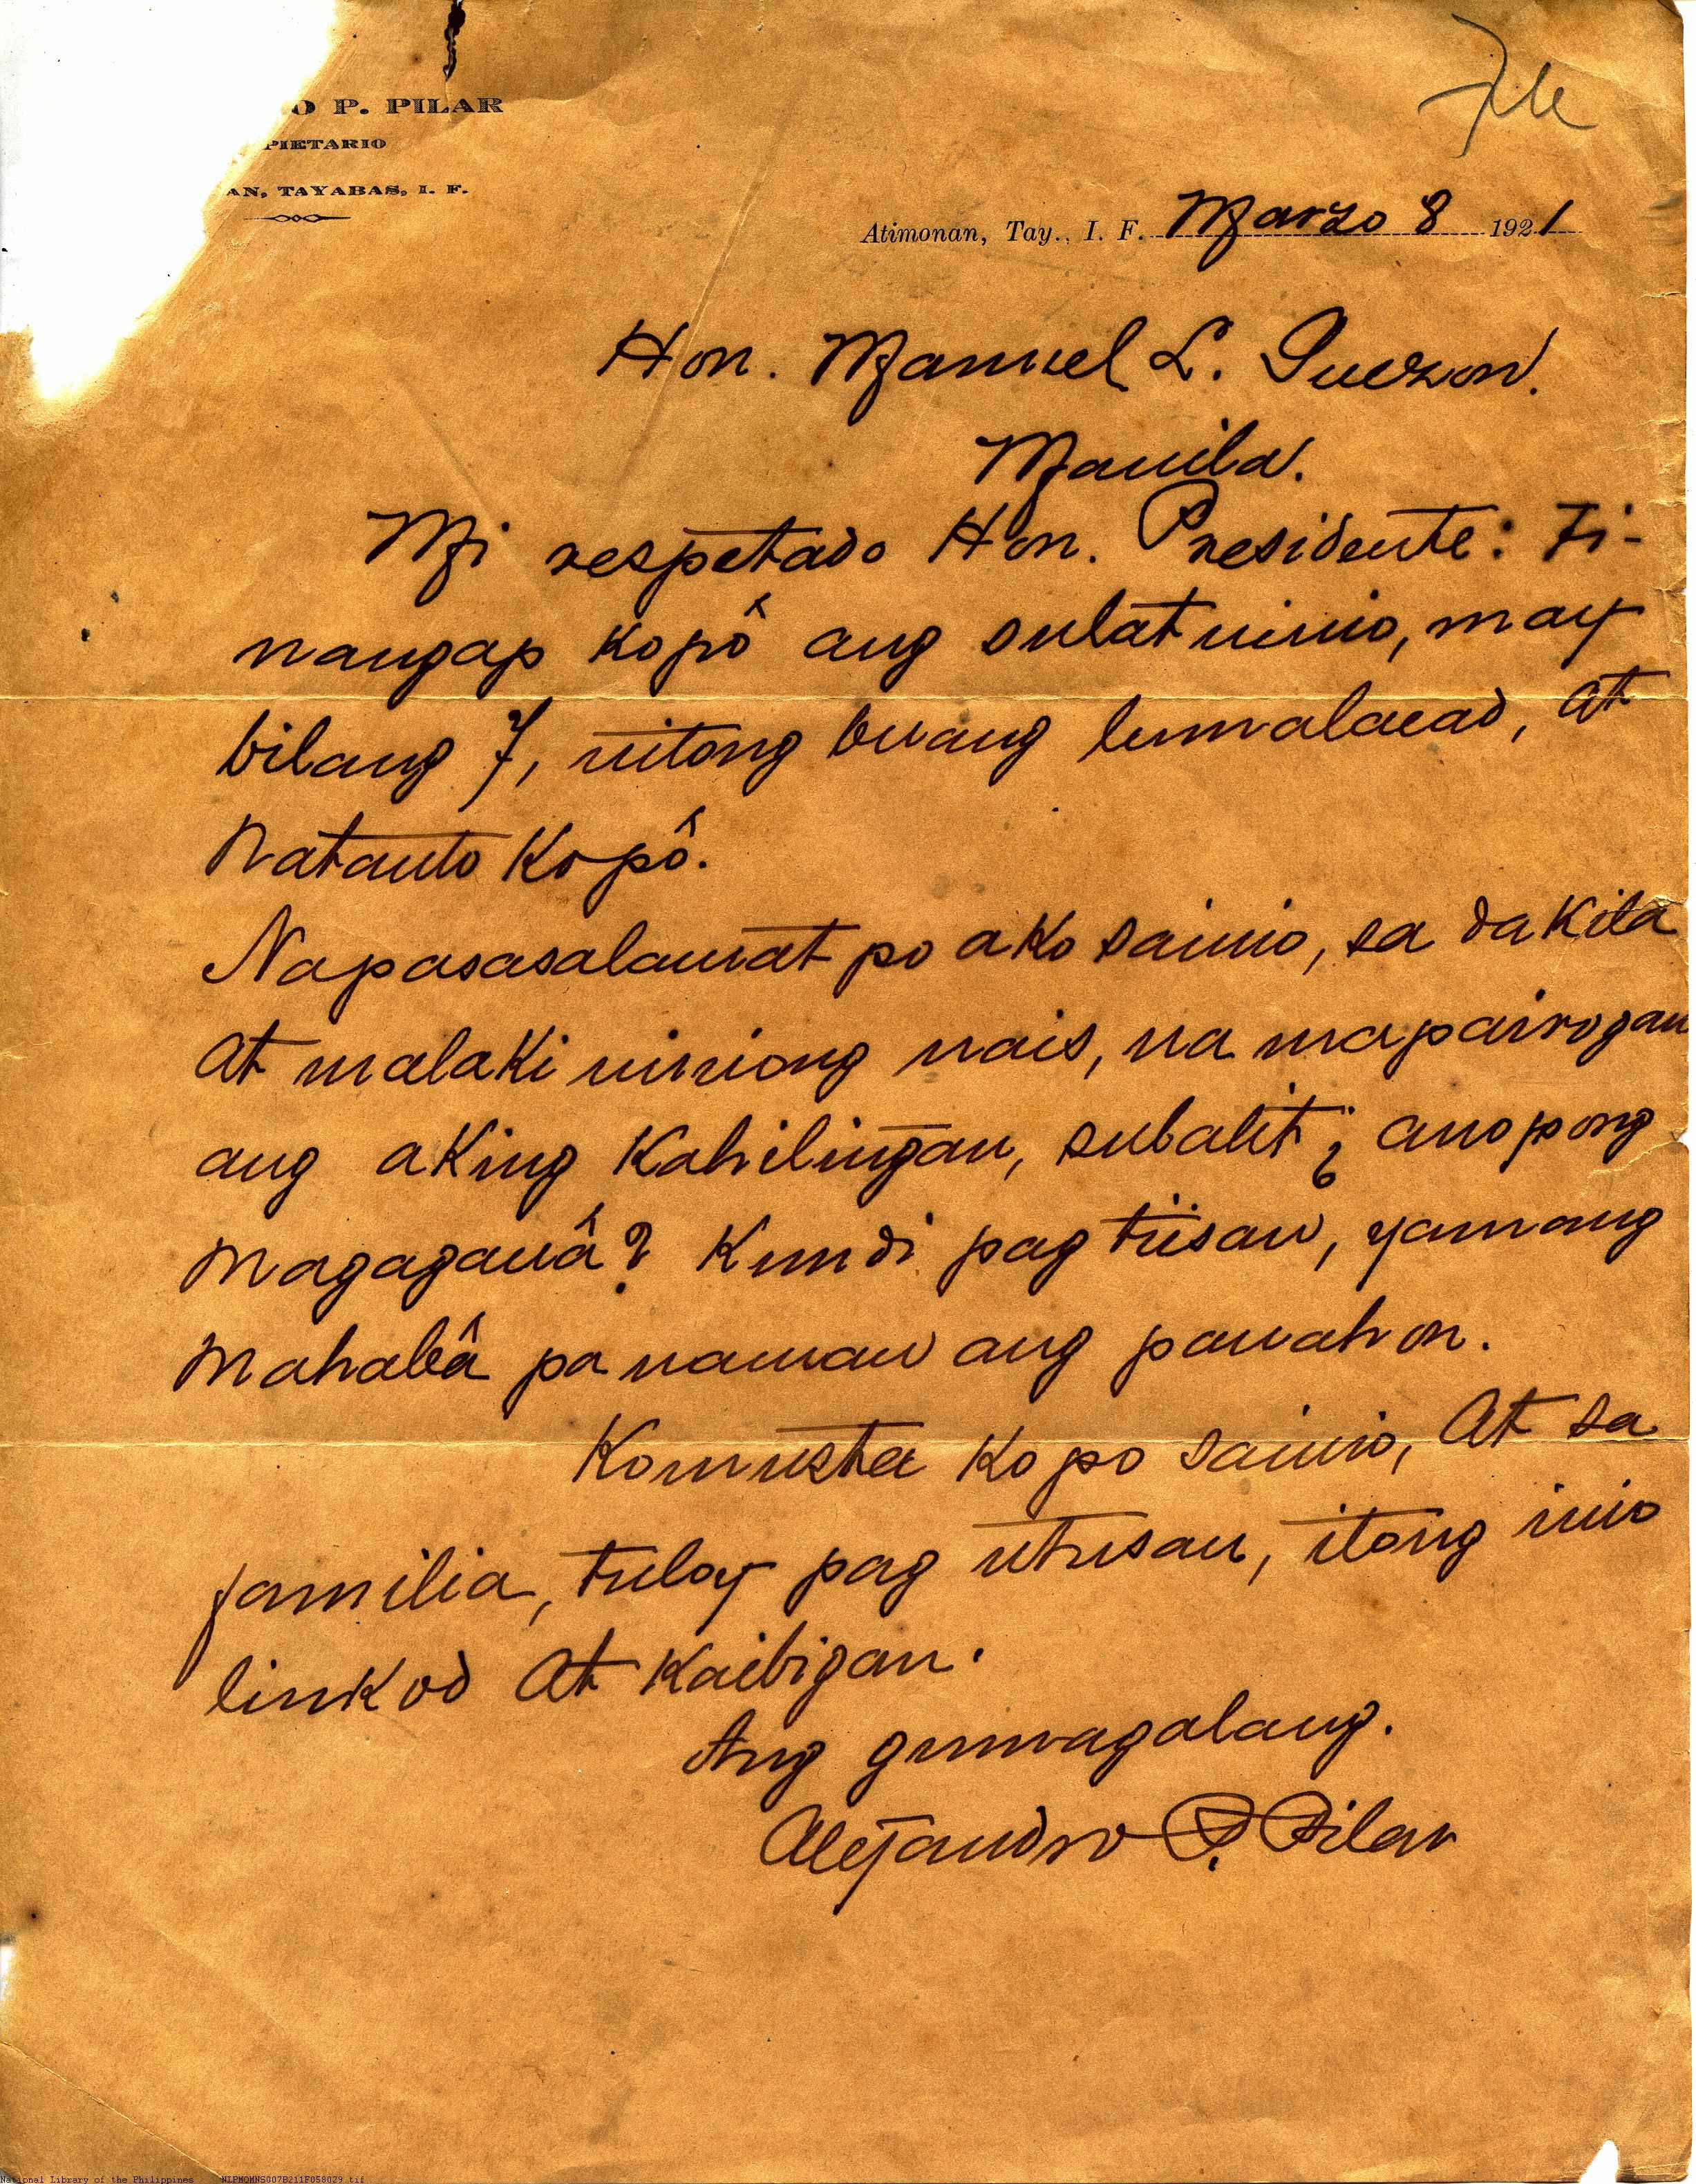 O P. PILAR
PIETARIO
AN, TAYABAS, I. F.
File
Atimonan, Tay., I. F. Marzo 8 1921
Hon. Manuel L. Quezon.
Manila.
Mi respetado Hon. Presidente: Ti-
nangap kopô ang sulat ninio, may
bilang 7, nitong buang lumalacad, at
Natanto Ko pô.
Napasasalamat po ako sainio, sa dakila
at malaki niniong nais, na mapairogan
ang aking Kahilingan, subalit ¿ anopong
magagauâ? Kundi pag tiisan, yamang
mahabâ pa naman ang panahon.
Komusta Ko po sainio, at sa
familia, tuloy pag utusan, itong inio
linkod at Kaibigan.
Ang gumagalang.
Alejandro P. Pilar
National Library of the Philippines NLPMQMNS007B211F058029.tif